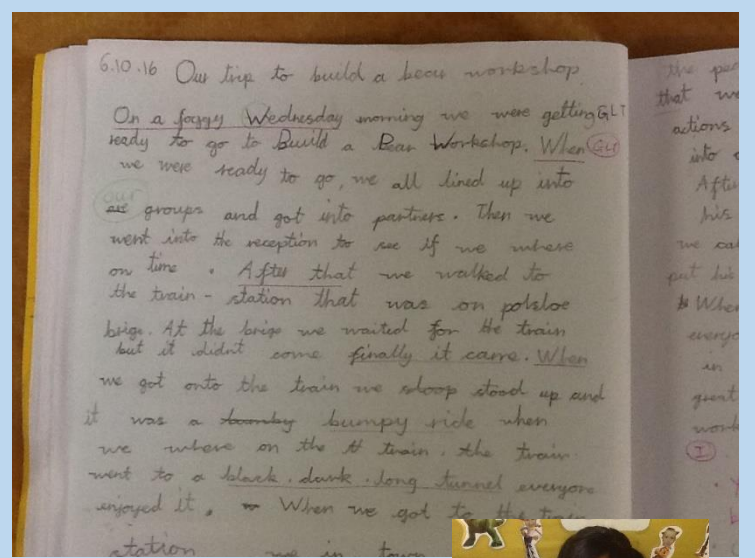 6.10.16 Our trip to build a bear workshop
On a foggy Wednesday morning we were getting GLI
ready to go to Buuild a Bear Workshop. When GLI
we were ready to go, we all lined up into
our
are groups and got into partners. Then we
went into the reception to see if we where
on time. After that we walked to
the train-station that was on polsloe
brige. At the brige we waited for the train
but it didn't come finally it came. When
we got onto the train we stoop stood up and
it was a bumpy ride when
we where on the tt train. the train
went to a black.dark.long tunnel everyone
enjoyed it. When we got to the train
station we in town
the
that we
actions
into
After
his
we
put his
When
everyo
in
great
work
I